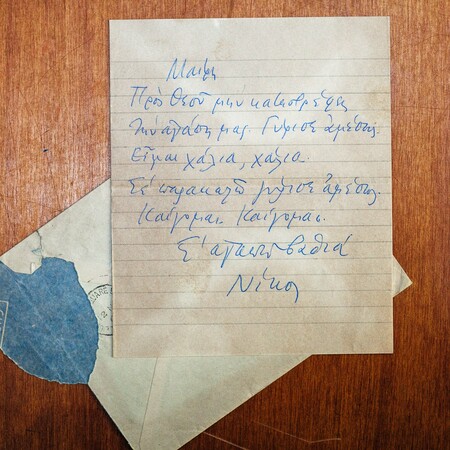 Μαίρη
Πρὸς Θεοῦ μην καταστρέφεις
την αγάπη μας. Γύρισε ἀμέσως.
Εἶμαι χάλια, χάλια.
Σὲ παρακαλῶ γύρισε ἀμέσως.
Καίγομαι. Καίγομαι.
Σ' αγαπῶ βαθιά
Νίκος